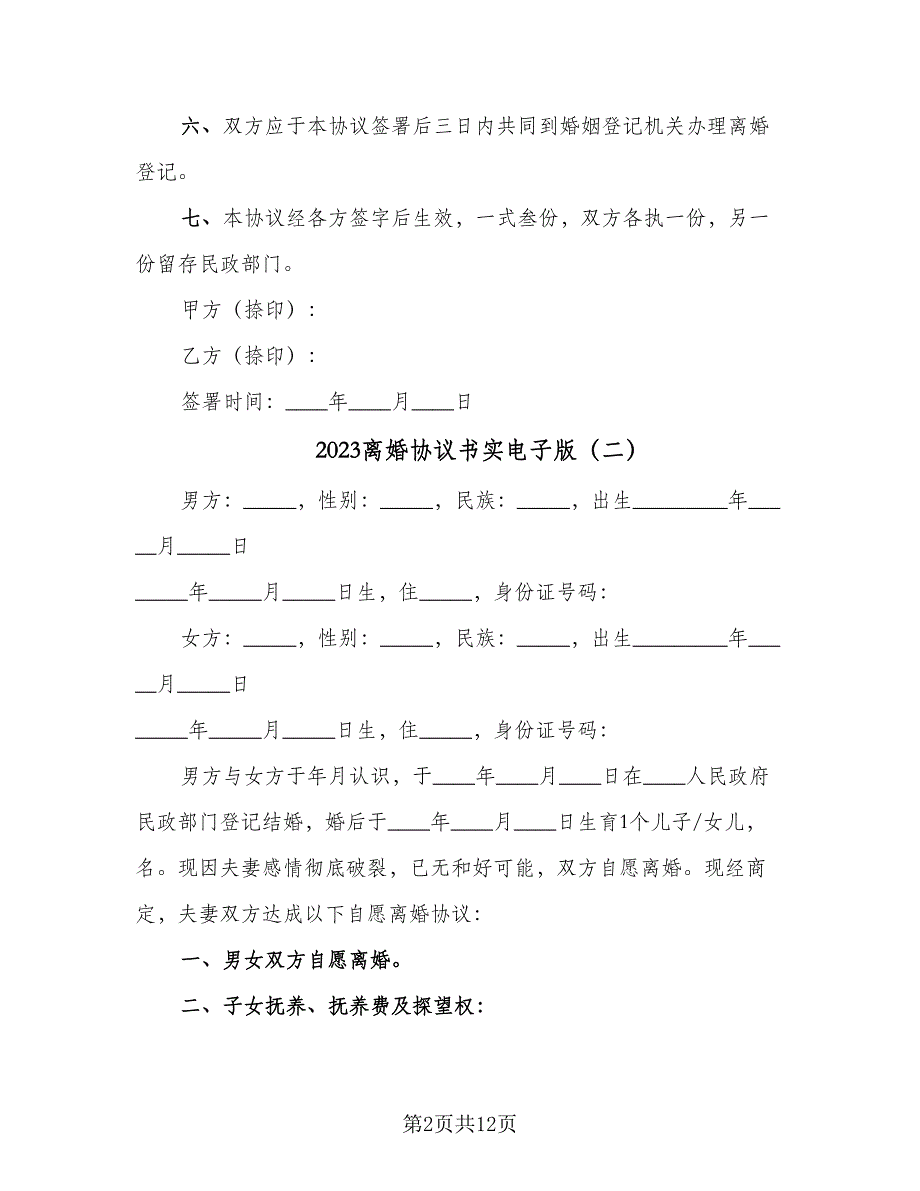 六、双方应于本协议签署后三日内共同到婚姻登记机关办理离婚
登记。
七、本协议经各方签字后生效，一式叁份，双方各执一份，另一
份留存民政部门。
甲方（捺印）：
乙方（捺印）：
签署时间：____年____月____日
2023离婚协议书实电子版（二）
男方：_____，性别：_____，民族：_____，出生_________年___
__月_____日
_____年_____月_____日生，住_____，身份证号码：
女方：_____，性别：_____，民族：_____，出生_________年___
__月_____日
_____年_____月_____日生，住_____，身份证号码：
男方与女方于年月认识，于____年____月____日在____人民政府
民政部门登记结婚，婚后于____年____月____日生育1个儿子/女儿，
名。现因夫妻感情彻底破裂，已无和好可能，双方自愿离婚。现经商
定，夫妻双方达成以下自愿离婚协议：
一、男女双方自愿离婚。
二、子女抚养、抚养费及探望权：
第2页共12页